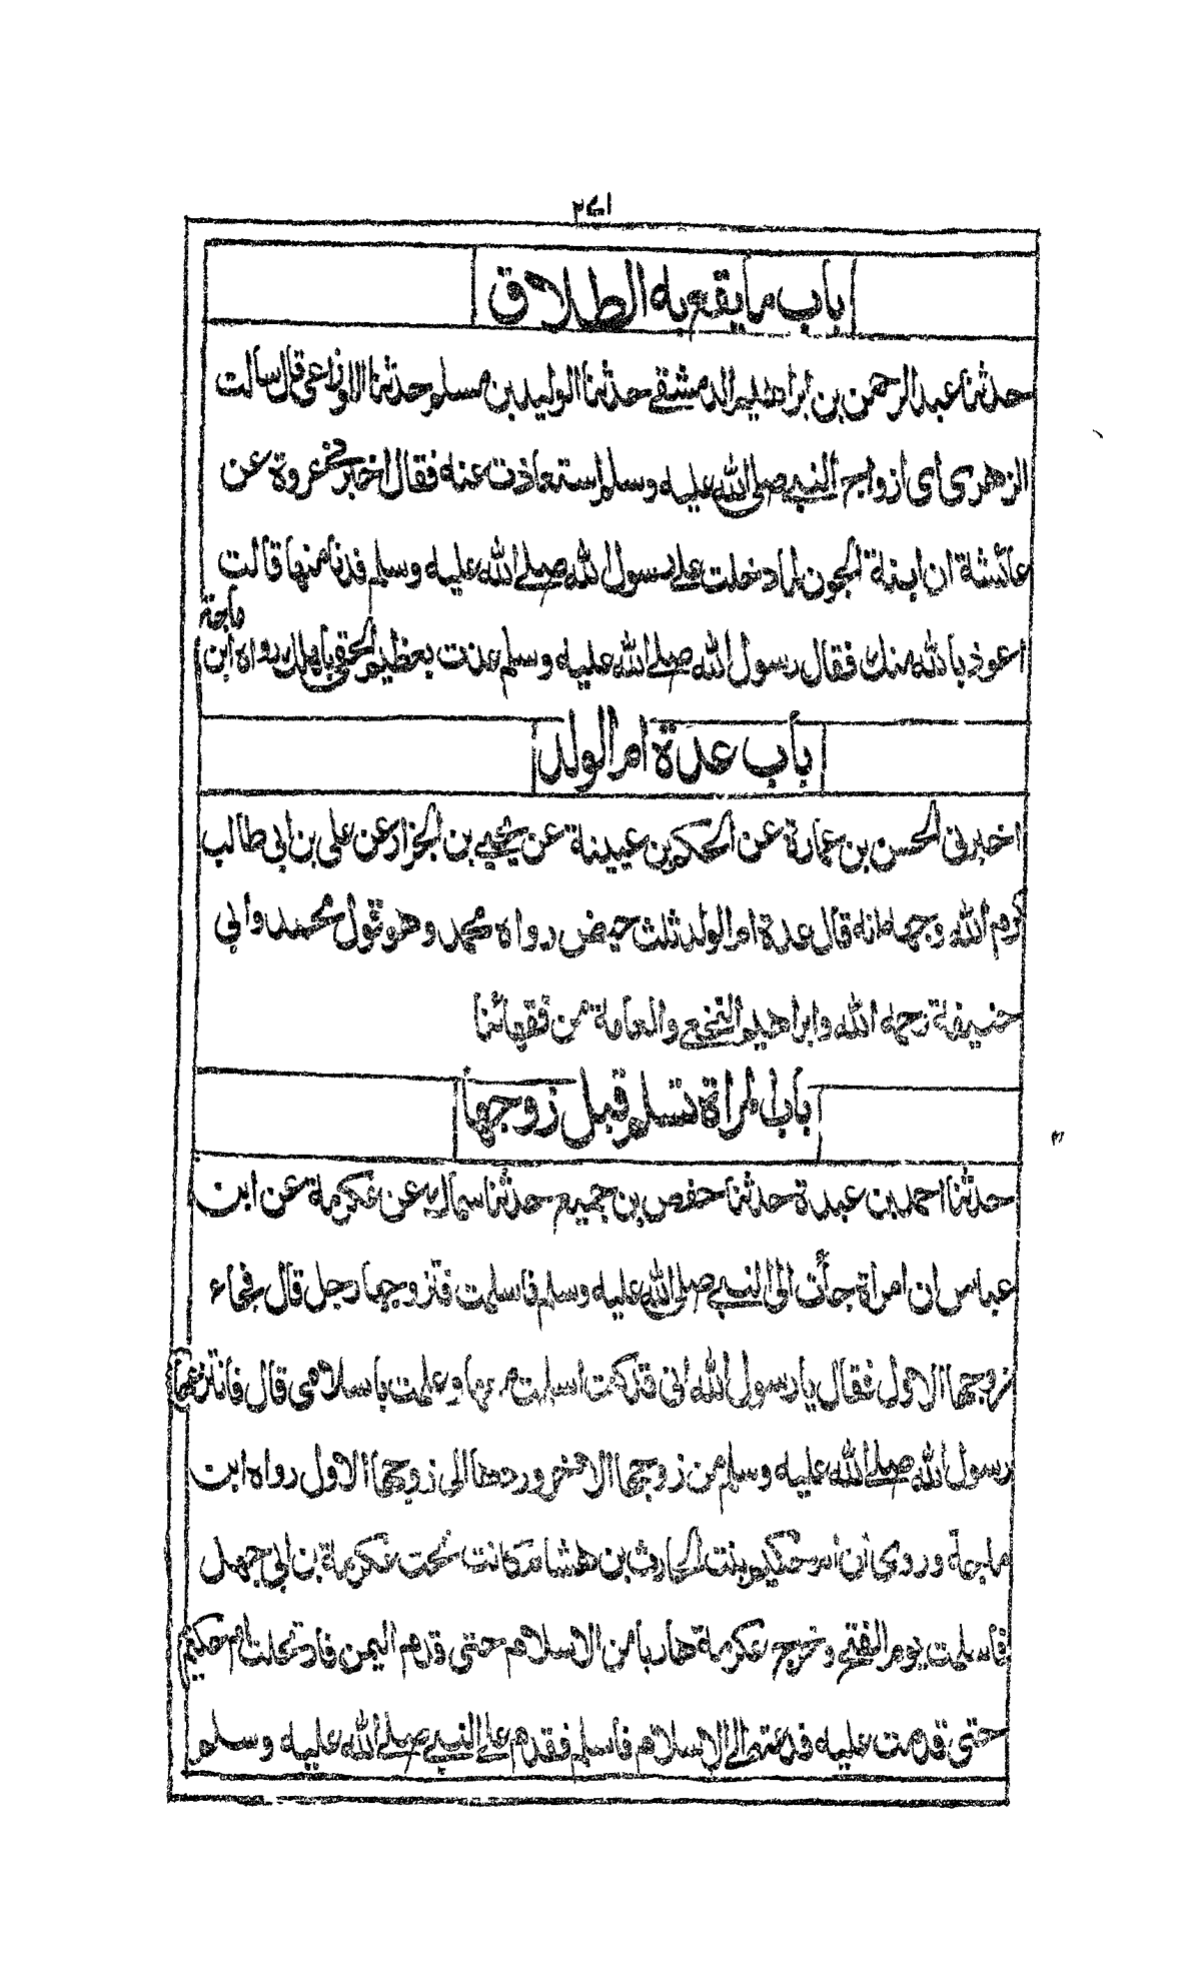 باب ما يقع به الطلاق
حدثنا عبد الرحمن بن ابراهيم الدمشقے حدثنا الوليد بن مسلم حدثنا الاوزاعى قال سالت
الزهرى اى ازواج النبے صلى الله عليه وسلم استعاذت عنه فقال اخبرنى عروة عن
عائشة ان ابنة الجون لما دخلت علے رسول الله صلے الله عليه وسلم فدنا منها قالت
اعوذ بالله منك فقال رسول الله صلے الله عليه وسلم عذت بعظيم الحقى باهلك رواه ابن
ماجة
باب عدة ام الولد
اخبرنى الحسن بن عمارة عن الحكم بن عيينة عن يحيے بن الجزار عن على بن ابى طالب
كرم الله وجهه انه قال عدة ام الولد ثلث حيض رواه محمد وهو قول محمد وابى
حنيفة رحمه الله وابراهيم النخعے والعامة من فقهائنا
باب المراة تسلم قبل زوجها
حدثنا احمد بن عبدة حدثنا حفص بن جميع حدثنا سماك عن عكرمة عن ابن
عباس ان امراة جأت الى النبے صلى الله عليه وسلم فاسلمت فتزوجها رجل قال فجاء
زوجها الاول فقال يا رسول الله انى قد كنت اسلمت معها وعلمت باسلامى قال فانتزعها
رسول الله صلے الله عليه وسلم من زوجها الاخر وردها الى زوجها الاول رواه ابن
ماجة وروى ان ام حكيم بنت الحارث بن هشام كانت تحت عكرمة بن ابى جهل
فاسلمت يوم الفتح وخرج عكرمة هاربا من الاسلام حتى قدم اليمن فارتحلت ام حكيم
حتى قدمت عليه فدعته الے الاسلام فاسلم فقدم علے النبے صلے الله عليه وسلم